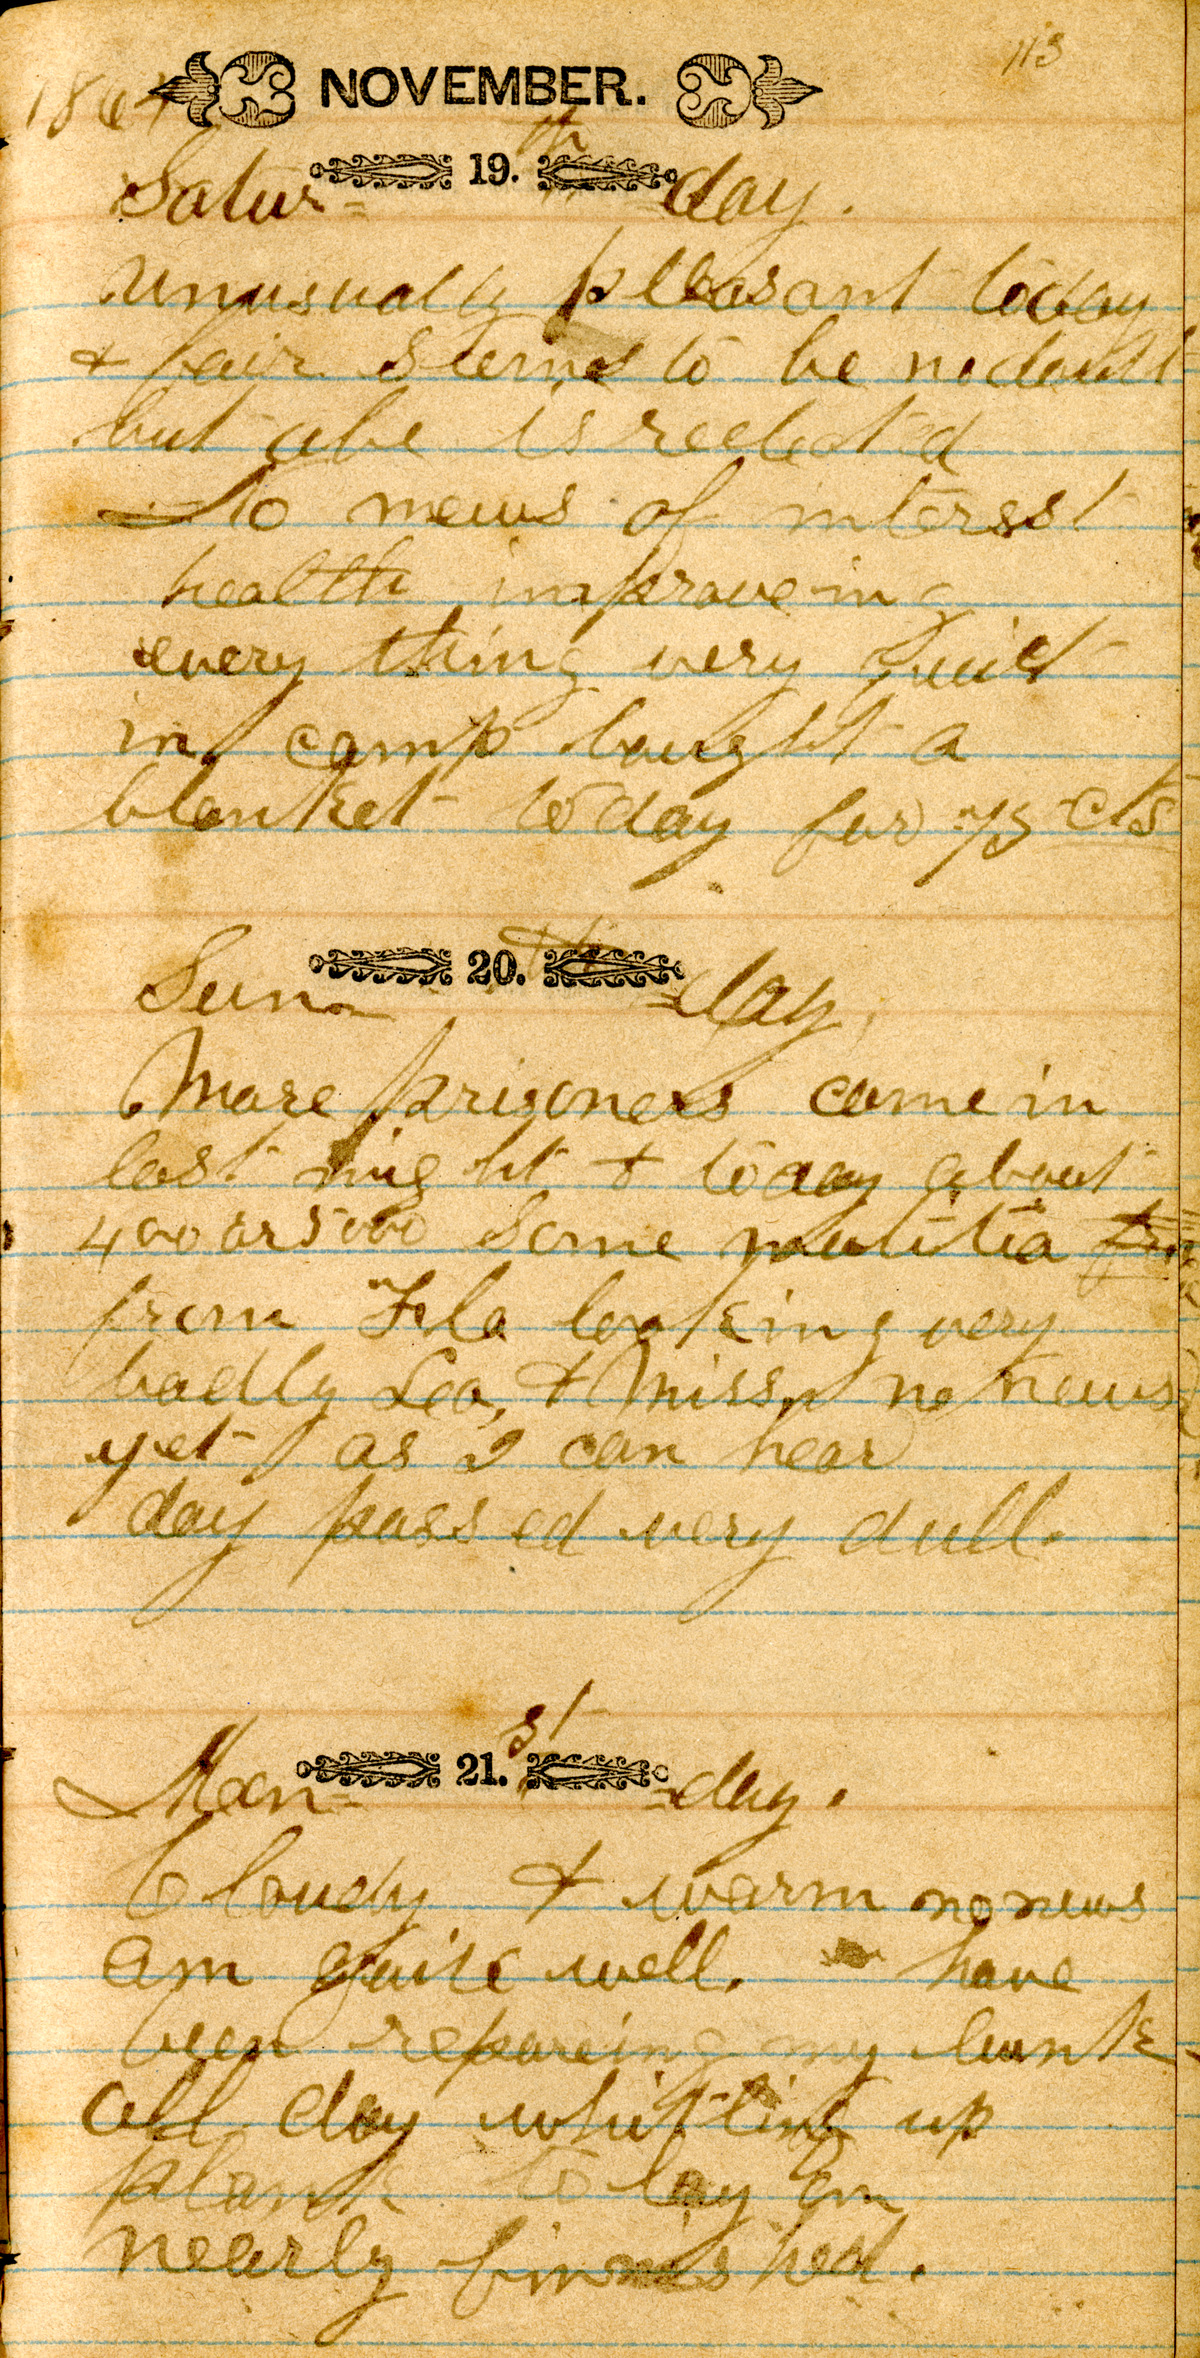 113
1864 NOVEMBER.
19.th
Satur= =day.
Unusually pleasant today
& fair seems to be no doubt
but abe is reelected
No news of interest
health improveing
every thing very quiet
in camp bought a
blanket today for 75 cts
20.th
Sun- =day,
More prisoners come in
last night & today about
400 or 500 some mulitia
from Fla looking very
badly Loa, & Miss, no news
yet as I can hear
day passed very dull.
21.st
Mon= =day.
Cloudy & warm no news
am quite well. have
been repareing my bunk
all day whittling up
plank to lay on
nearly finnished.